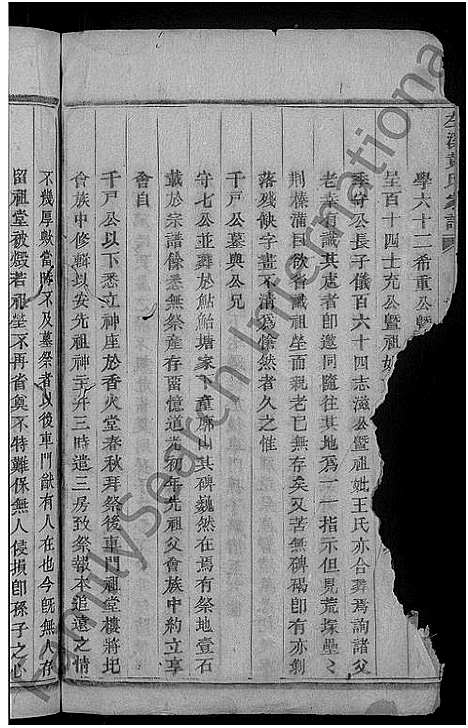 左溪黃氏家譜
學六十二希重公暨
塋百十四士充公暨祖妣
季守公長子儀百六十四志滋公暨祖妣王氏亦合葬焉詢諸父
老幸有識其處者即邀同隨往其地為一一指示但見荒塚壘々
荆榛滿目欲省識祖塋而親老已無存矣又苦無碑碣即有亦剝
落殘缺字畫不清為愴然者久之惟
千戸公墓與公兄
守七公並葬於鮎鮐塘家下童廓山其碑巍然在焉有祭地壹石
載於宗譜餘悉無祭產存畱憶道光初年先祖父會族中約立享
會自
千戸公以下悉立神座於香火堂春秋拜祭後車門祖堂樓將圮
會族中修輯以安先祖神主并三時遣三房致祭報本追遠之情
不幾厚歟當時不及墓祭者以後車門猷有人在也今既無人存
留祖堂被燬若祖塋不再省奠不特難保無人侵損即孫子之心
FamilySearch International